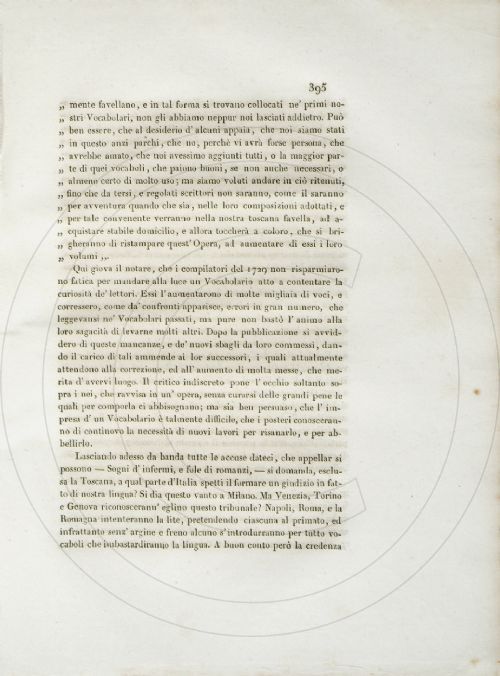 395
„ mente favellano, e in tal forma si trovano collocati ne' primi no-
„ stri Vocabolari, non gli abbiamo neppur noi lasciati addietro. Può
„ ben essere, che al desiderio d'alcuni appaia, che noi siamo stati
„ in questo anzi parchi, che no, perchè vi avrà forse persona, che
„ avrebbe amato, che noi avessimo aggiunti tutti, o la maggior par-
„ te di quei vocaboli, che paiono buoni, se non anche necessari, o
„ almeno certo di molto uso; ma siamo voluti andare in ciò ritenuti,
„ fino che da tersi, e regolati scrittori non saranno, come il saranno
„ per avventura quando che sia, nelle loro composizioni adottati, e
„ per tale convenente verranno nella nostra toscana favella, ad a-
„ cquistare stabile domicilio, e allora toccherà a coloro, che si bri-
„ gheranno di ristampare quest' Opera, ad aumentare di essi i loro
„ volumi „.
Qui giova il notare, che i compilatori del 1729 non risparmiaro-
no fatica per mandare alla luce un Vocabolario atto a contentare la
curiosità de' lettori. Essi l'aumentarono di molte migliaia di voci, e
corressero, come da' confronti apparisce, errori in gran numero, che
leggevansi ne' Vocabolari passati, ma pure non bastò l'animo alla
loro sagacità di levarne molti altri. Dopo la pubblicazione si avvid-
dero di queste mancanze, e de' nuovi sbagli da loro commessi, dan-
do il carico di tali ammende ai lor successori, i quali attualmente
attendono alla correzione, ed all'aumento di molta messe, che me-
rita d'avervi luogo. Il critico indiscreto pone l'occhio soltanto so-
pra i nei, che ravvisa in un' opera, senza curarsi delle grandi pene le
quali per comporla ci abbisognano; ma sia ben persuaso, che l'im-
presa d'un Vocabolario è talmente difficile, che i posteri conosceran-
no di continovo la necessità di nuovi lavori per risanarlo, e per ab-
bellirlo.
Lasciando adesso da banda tutte le accuse dateci, che appellar si
possono — Sogni d'infermi, e fole di romanzi, — si domanda, esclu-
sa la Toscana, a qual parte d'Italia spetti il formare un giudizio in fat-
to di nostra lingua? Si dia questo vanto a Milano. Ma Venezia, Torino
e Genova riconosceranu' eglino questo tribunale? Napoli, Roma, e la
Romagna intenteranno la lite, pretendendo ciascuna al primato, ed
infrattanto senz' argine e freno alcuno s'introdurranno per tutto vo-
caboli che imbastardiranno la lingua. A buon conto però la credenza